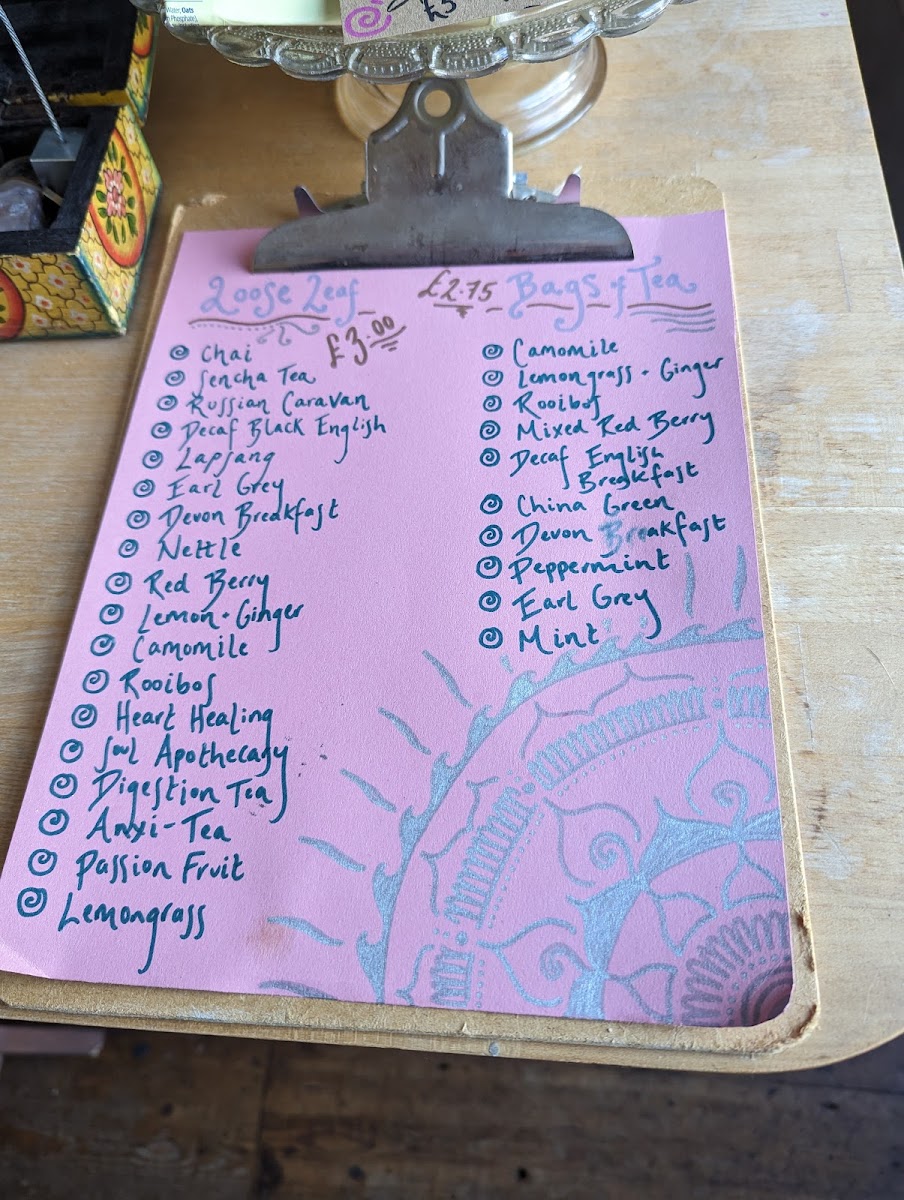 Water, Oats
Phosphate),
£3
Loose Leaf
£3.00
Chai
Sencha Tea
Russian Caravan
Decaf Black English
Lapsang
Earl Grey
Devon Breakfast
Nettle
Red Berry
Lemon + Ginger
Camomile
Rooibos
Heart Healing
Soul Apothecary
Digestion Tea
Anxi-Tea
Passion Fruit
Lemongrass
£2.75 Bags of Tea
Camomile
Lemongrass + Ginger
Rooibos
Mixed Red Berry
Decaf English
Breakfast
China Green
Devon Breakfast
Peppermint
Earl Grey
Mint